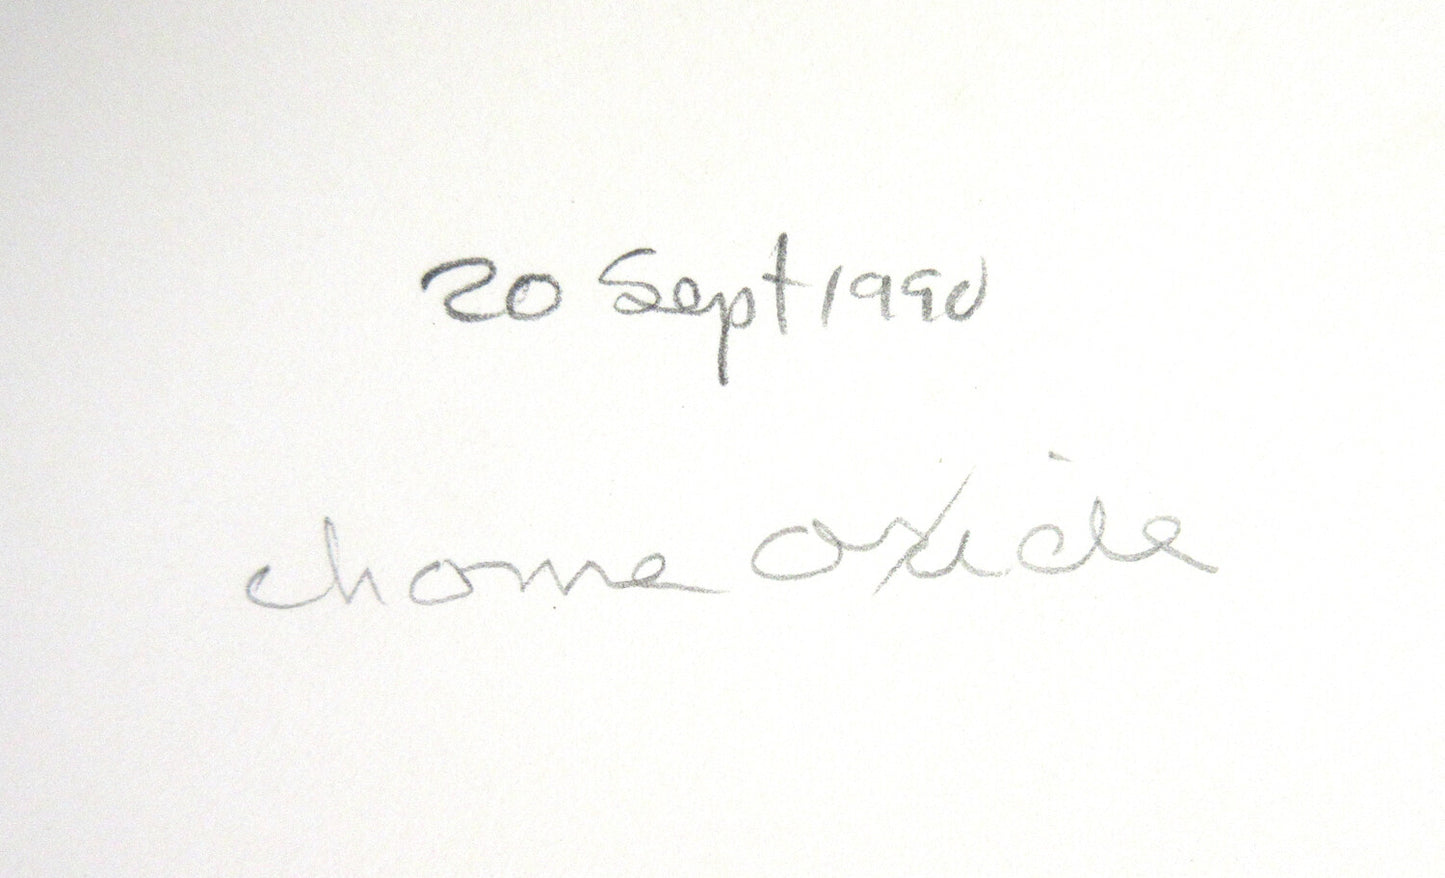 20 Sept 1990
chome oxide